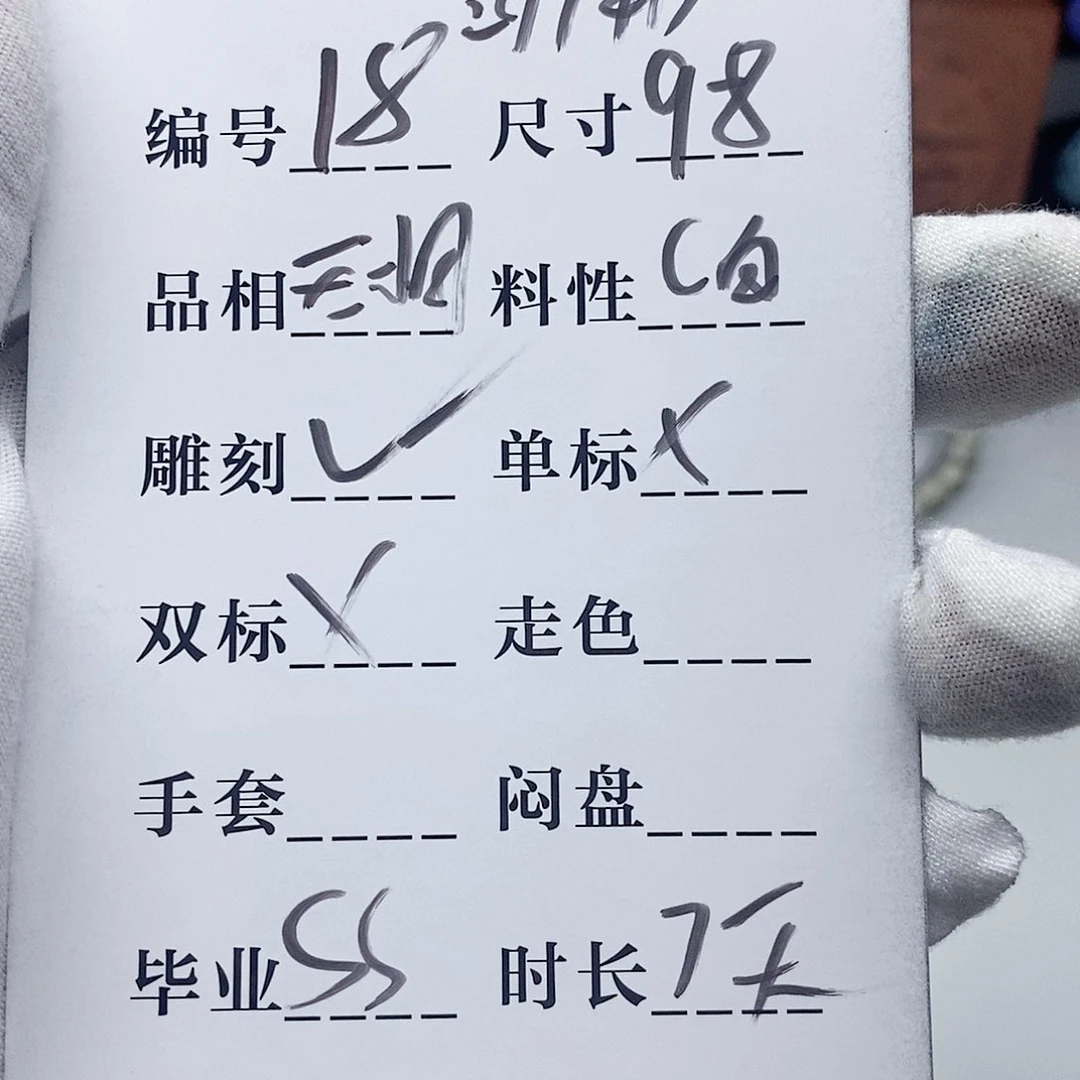 编号 18 尺寸 98
品相 无瑕 料性 C白
雕刻 ✓ 单标 ✗
双标 ✗ 走色
手套 闷盘
毕业 SS 时长 7天